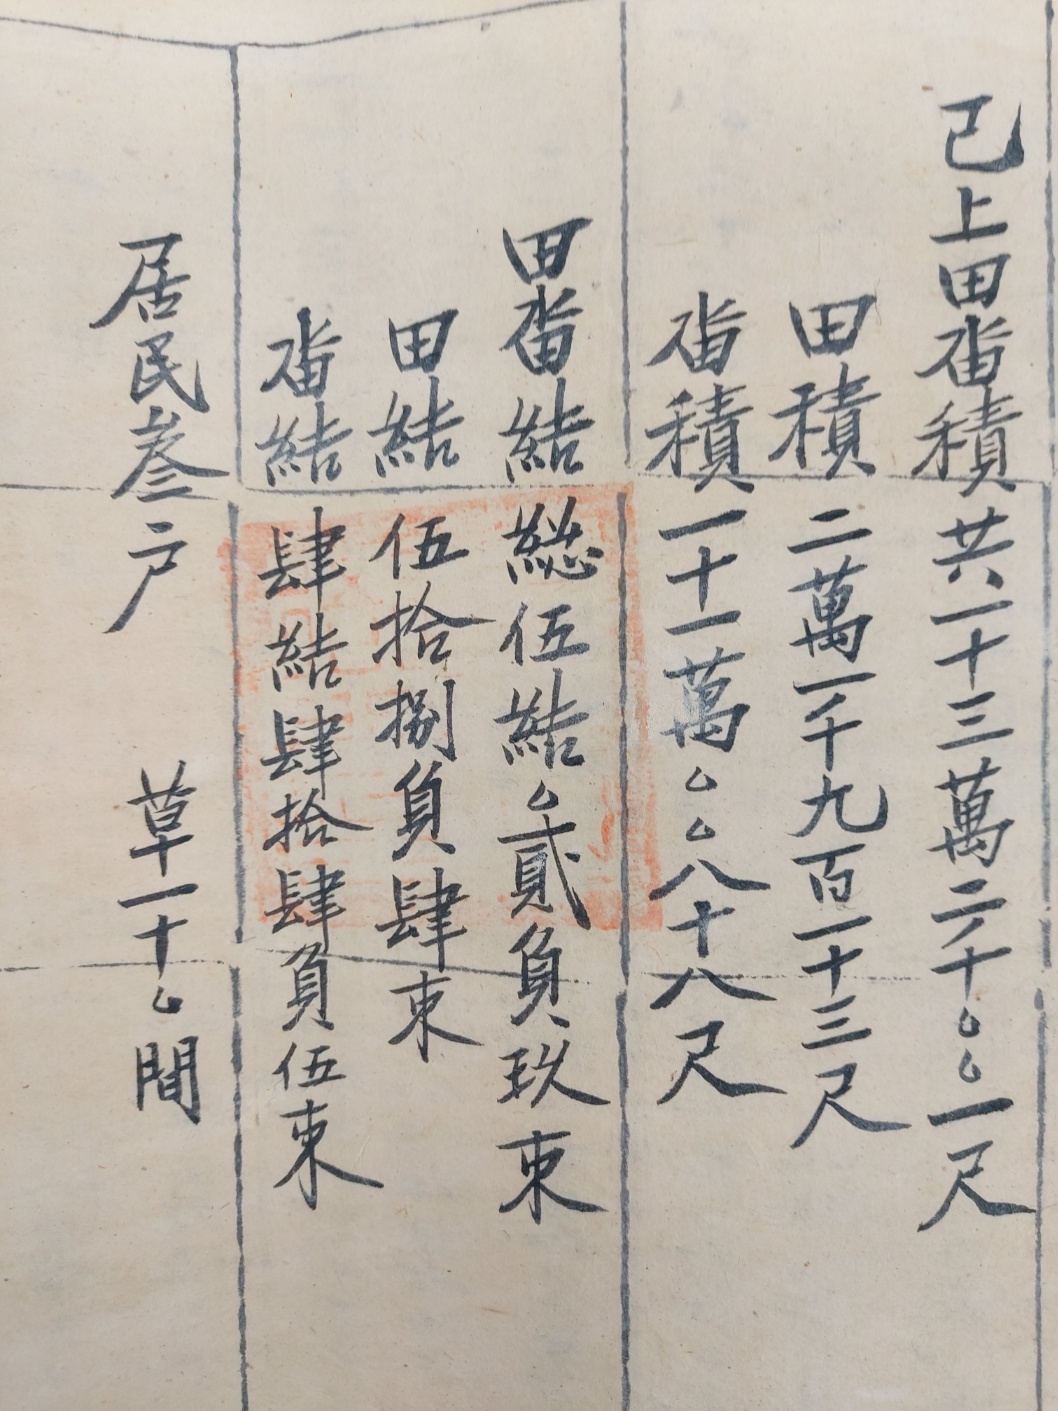 已上田畓積共一十三萬二千〇〇一尺
田積二萬一千九百一十三尺
畓積一十一萬〇〇八十八尺
田畓結緫伍結〇貳負玖束
田結伍拾捌負肆束
畓結肆結肆拾肆負伍束
居民叄戶 草一十〇間